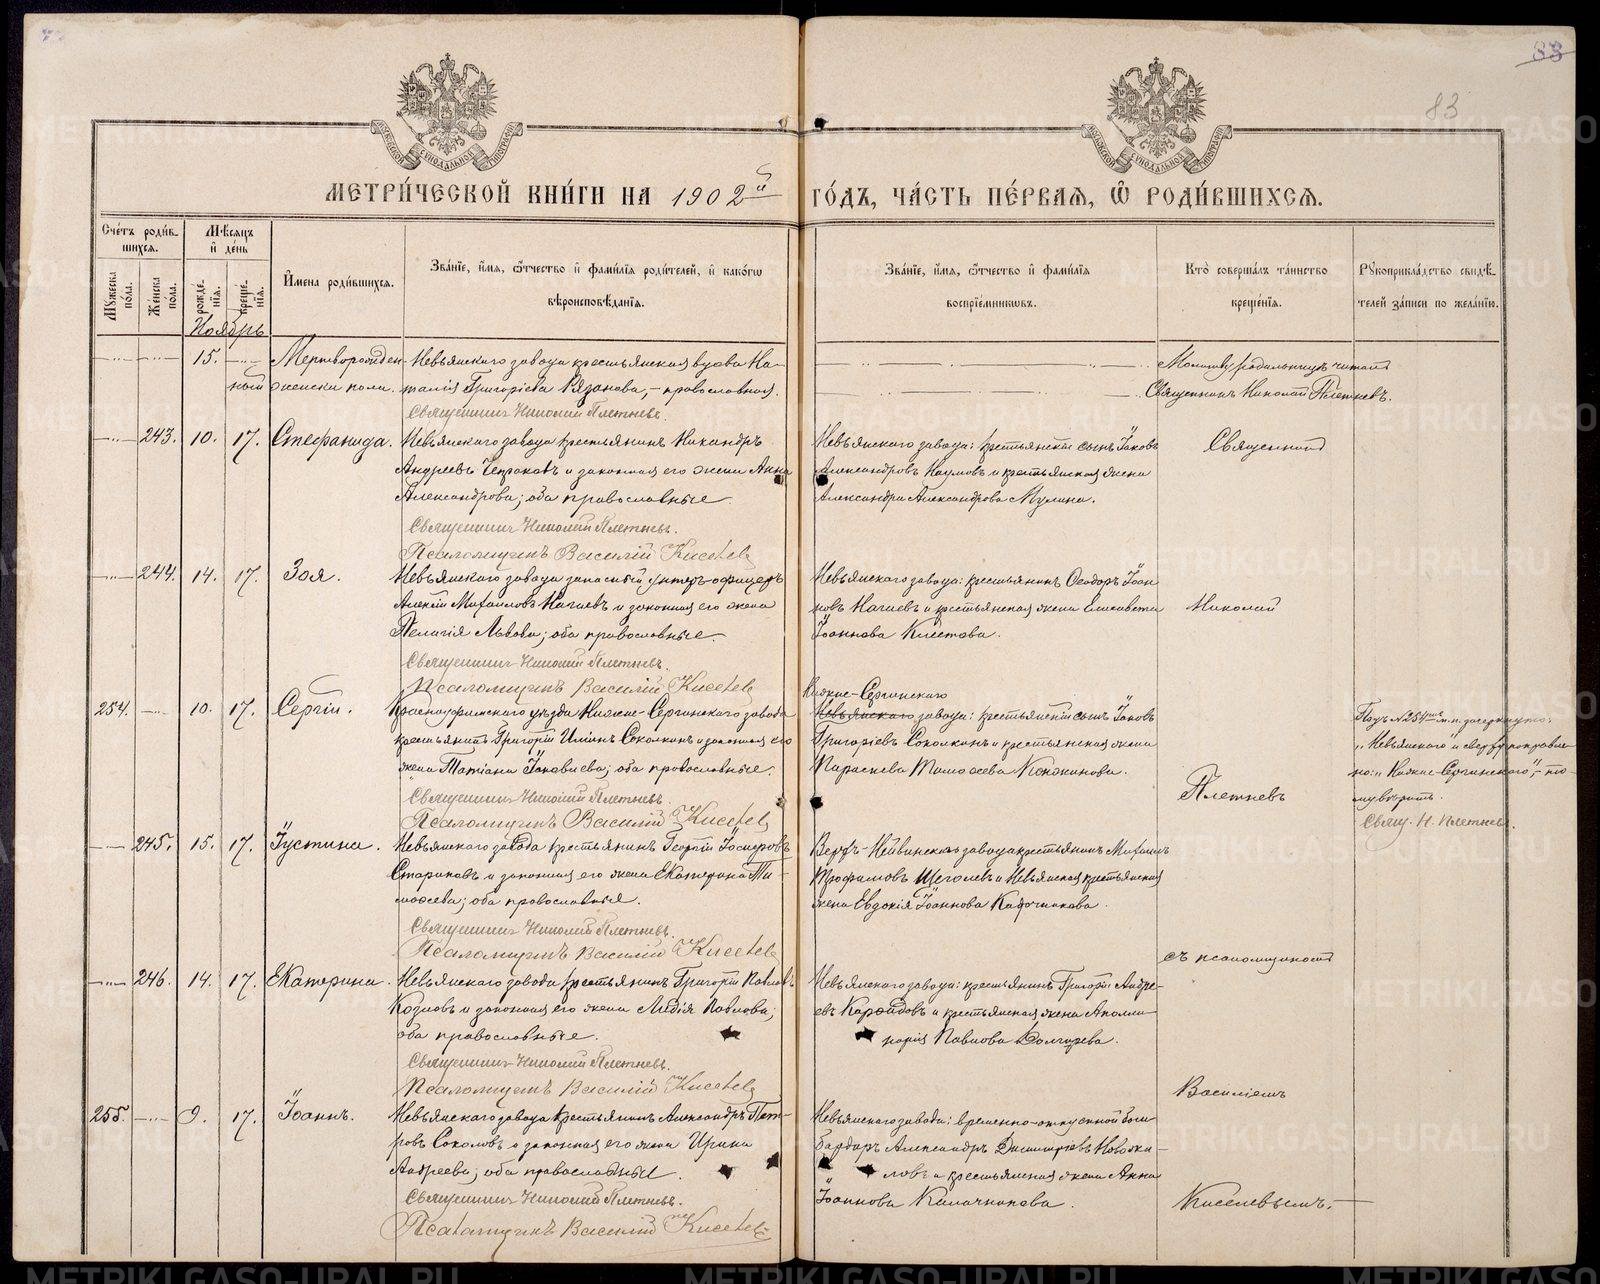 83
83
МОСКОВСКОЙ СУНОДАЛЬНОЙ ТИПОГРАФІИ
МОСКОВСКОЙ СУНОДАЛЬНОЙ ТИПОГРАФІИ
МЕТРИ́ЧЕСКОЙ КНИ́ГИ НА 1902й ГО́ДЪ, ЧА́СТЬ ПЕ́РВАѦ, Ѡ҆ РОДИ́ВШИХСѦ.
Сче́тъ роди́в-
шихсѧ.
Мѣ́сѧцъ
и҆ де́нь
Мꙋ́жеска по́ла.
Же́нска по́ла.
рожде́-
нїѧ.
креще́-
нїѧ.
И҆мена роди́вшихсѧ.
Зва́нїе, и҆́мѧ, ѻ҆́тчество и҆ фами́лїѧ роди́телей, и҆ како́гѡ
вѣроисповѣ́данїѧ.
Зва́нїе, и҆́мѧ, ѻ҆́тчество и҆ фами́лїѧ
воспрїе́мникѡвъ.
Кто̀ соверша́лъ та́инство
креще́нїѧ.
Рꙋкоприкла́дство свидѣ́-
телей за́писи по жела́нїю.
Ноябрь
15. Мертворожден-
ный женска пола.
Невьянскаго завода крестьянская вдова На-
талія Григоріева Рязанова, - православная.
Священникъ Николай Плетневъ.
Молитву родильницѣ читалъ
Священникъ Николай Плетневъ.
243. 10. 17. Стефанида.
Невьянскаго завода крестьянинъ Никандръ
Андреевъ Чепраковъ и законная его жена Анна
Александрова; оба православные.
Священникъ Николай Плетневъ.
Псаломщикъ Василій Киселевъ
Невьянскаго завода: крестьянскій сынъ Іаковъ
Александровъ Наумовъ и крестьянская жена
Александра Александрова Мулина.
Священникъ
244. 14. 17. Зоя.
Невьянскаго завода запасный унтеръ-офицеръ
Алексій Михаиловъ Нагаевъ и законная его жена
Пелагія Львова; оба православные.
Священникъ Николай Плетневъ.
Псаломщикъ Василій Киселевъ
Невьянскаго завода: крестьянинъ Ѳеодоръ Іоан-
новъ Нагаевъ и крестьянская жена Елисавета
Іоаннова Клестова.
Николай
254. 10. 17. Сергій.
Красноуфимскаго уѣзда Нижне-Сергинскаго завода
крестьянинъ Григорій Илiинъ Соколкинъ и законная его
жена Татіана Іаковлева; оба православные.
Священникъ Николай Плетневъ.
Псаломщикъ Василій Киселевъ
Нижне-Сергинскаго
Невьянскаго завода: крестьянскій сынъ Іаковъ
Григоріевъ Соколкинъ и крестьянская жена
Параскева Тимоѳеева Кокжинова.
Плетневъ
Подъ №254мъ м.п. зачеркнуто:
„Невьянскаго" и сверху поправле-
но: „Нижне-Сергинскаго", - то-
му вѣрить.
Свящ. Н. Плетневъ.
245. 15. 17. Іустина.
Невьянскаго завода крестьянинъ Георгій Іосифовъ
Стариковъ и законная его жена Екатерина Ти-
моѳеева; оба православныя.
Священникъ Николай Плетневъ.
Псаломщикъ Василій Киселевъ
Верхъ-Нейвинскаго завода крестьянинъ Михаилъ
Трофимовъ Щеголевъ и Невьянская крестьянская
жена Евдокія Іоаннова Кафочникова.
съ псаломщикомъ
246. 14. 17. Екатерина.
Невьянскаго завода крестьянинъ Григорій Павловъ
Козловъ и законная его жена Лидія Павлова;
оба православные.
Священникъ Николай Плетневъ.
Псаломщикъ Василій Киселевъ
Невьянскаго завода: крестьянинъ Григорій Андре-
евъ Карфидовъ и крестьянская жена Аполли-
нарія Павлова Долгирева.
Василіемъ
255. 9. 17. Іоаннъ.
Невьянскаго завода крестьянинъ Александръ Пет-
ровъ Соколовъ и законная его жена Ирина
Андреева; оба православны.
Священникъ Николай Плетневъ.
Псаломщикъ Василій Киселевъ
Невьянскаго завода: временно-отпускной бом-
бардиръ Александръ Димитріевъ Новожи-
ловъ и крестьянская жена Анна
Іоаннова Калачникова.
Киселевымъ.
METRIKI.GASO-URAL.RU